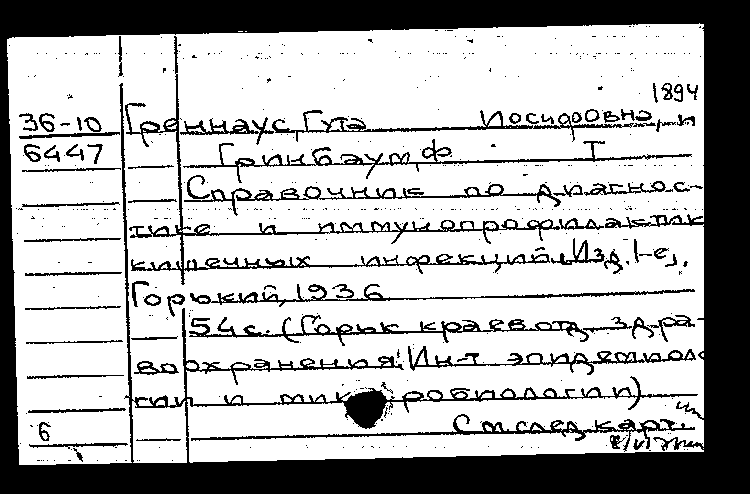 1894
36-10 Греннаус, Гута Иосифовна, и
6447 Гринбаум, Ф Т
Справочник по диагнос-
тике и иммунопрофилактик
кишечных инфекций. Изд. 1-е,
Горький, 1936
54 с. (Горьк краев отд здра-
воохранения. Ин-т эпидемиоло
гии и микробиологии)
6 См. след. карт.